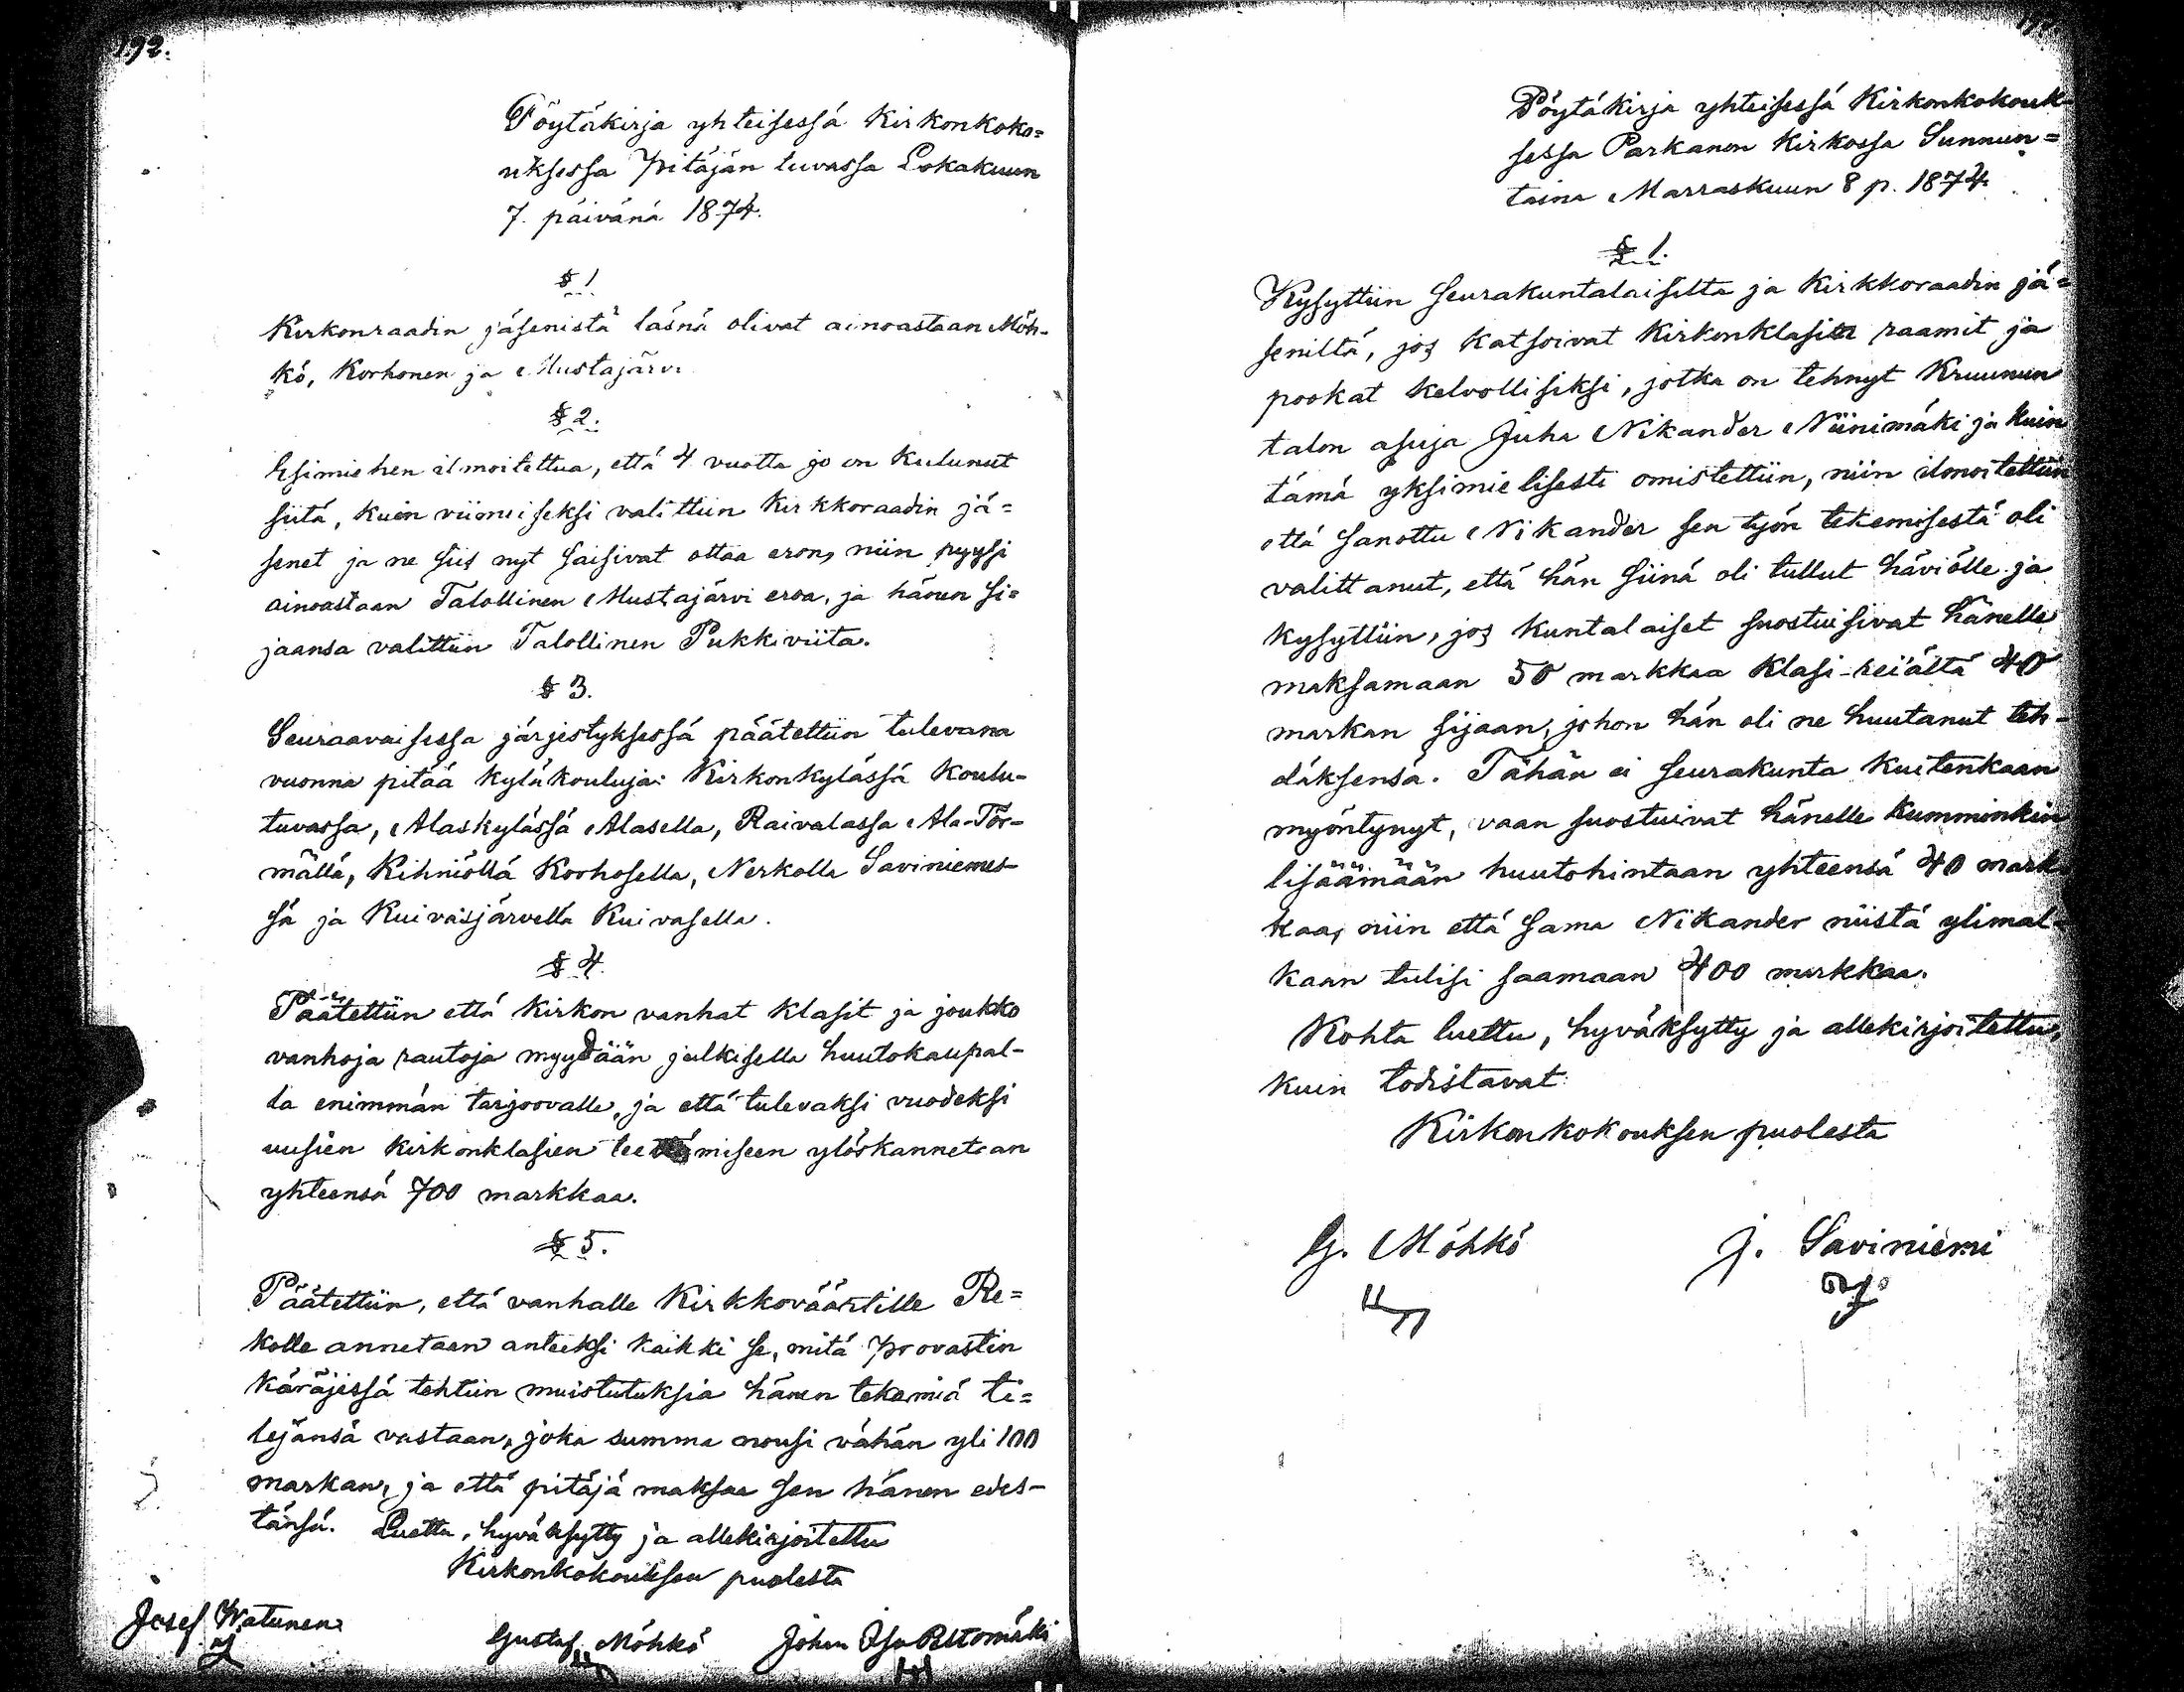 192.
Pöytäkirja yhteisessä Kirkonkoko=
uksessa Pitäjän tuvassa Lokakuun
7. päivänä 1874.
§ 1
Kirkonraadin jäsenistä läsnä olivat ainoastaan Möh-
kö, Korhonen ja Mustajärvi
§ 2.
Esimiehen ilmoitettua, että 4 vuotta jo on kulunut
siitä, kuin viimeiseksi valittiin Kirkkoraadin jä=
senet ja ne siis nyt saisivat ottaa eron, niin pyysi
ainoastaan Talollinen Mustajärvi eroa, ja hänen si=
jaansa valittiin Talollinen Pukkiviita.
§ 3.
Seuraavaisessa järjestyksessä päätettiin tulevana
vuonna pitää kyläkouluja: Kirkonkylässä Koulu-
tuvassa, Alaskylässä Alasella, Raivalassa Ala-Tör-
mällä, Kihniöllä Korhosella, Nerkolla Saviniemes-
sä ja Kuivasjärvellä Kuivasella.
§ 4.
Päätettiin että Kirkon vanhat klasit ja joukko
vanhoja rautoja myydään julkisella huutokaupal-
la enimmän tarjoovalle, ja että tulevaksi vuodeksi
uusien kirkonklasien teettämiseen ylöskannetaan
yhteensä 700 markkaa.
§ 5.
Päätettiin, että vanhalle Kirkkoväärtille Re=
kolle annetaan anteeksi kaikki se, mitä Provastin
käräjissä tehtiin muistutuksia hänen tekemiä ti=
lejänsä vastaan, joka summa nousi vähän yli 100
markan, ja että pitäjä maksaa sen hänen edes-
tänsä. Luettu, hyväksytty ja allekirjoitettu
Kirkonkokouksen puolesta
Josef Watunen Gustaf Möhkö Johan Iso Peltomäki
Pöytäkirja yhteisessä Kirkonkokouk-
sessa Parkanon Kirkossa Sunnun=
taina Marraskuun 8 p. 1874.
§ 1.
Kysyttiin seurakuntalaisilta ja Kirkkoraadin jä=
seniltä, jos katsoivat Kirkonklasin raamit ja
pookat kelvollisiksi, jotka on tehnyt Kruunun
talon asuja Juha Nikander Niinimäki ja kuin
tämä yksimielisesti omistettiin, niin ilmoitettiin
että sanottu Nikander sen työn tekemisestä oli
valittanut, että hän siinä oli tullut häviölle ja
kysyttiin, jos kuntalaiset suostuisivat hänelle
maksamaan 50 markkaa klasi-reiältä 40
markan sijaan, johon hän oli ne huutanut teh-
däksensä. Tähän ei seurakunta kuitenkaan
myöntynyt, vaan suostuivat hänelle kumminkin
lisäämään huutohintaan yhteensä 40 mark
kaa, niin että sama Nikander niistä ylimal-
kaan tulisi saamaan 400 markkaa.
Kohta luettu, hyväksytty ja allekirjoitettu,
kuin todistavat
Kirkonkokouksen puolesta
G. Möhkö J. Saviniemi